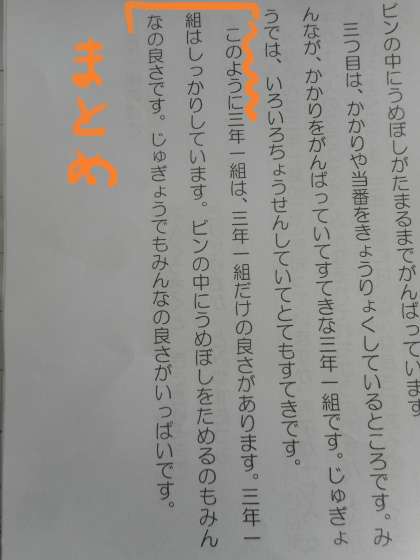 ビンの中にうめぼしがたまるまでがんばっています
三つ目は、かかりや当番をきょうりょくしているところです。み
んなが、かかりをがんばっていてすてきな三年一組です。じゅぎょ
うでは、いろいろちょうせんしていてとてもすてきです。
このように三年一組は、三年一組だけの良さがあります。三年一
組はしっかりしています。ビンの中にうめぼしをためるのもみん
なの良さです。じゅぎょうでもみんなの良さがいっぱいです。
まとめ